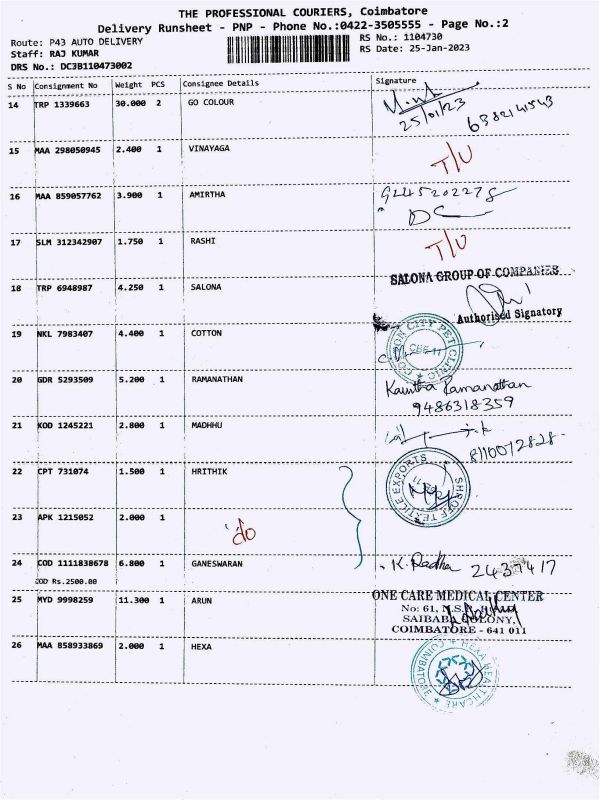 THE PROFESSIONAL COURIERS, Coimbatore
Delivery Runsheet - PNP - Phone No.:0422-3505555 - Page No.:2
Route: P43 AUTO DELIVERY
RS No.: 1104730
Staff: RAJ KUMAR
RS Date: 25-Jan-2023
DRS No.: DC3B110473002
S No Consignment No Weight PCS Consignee Details Signature
14 TRP 1339663 30.000 2 GO COLOUR
25/01/23 6382141543
15 MAA 298050945 2.400 1 VINAYAGA T/U
16 MAA 859057762 3.900 1 AMIRTHA 9244520227
DC
17 SLM 312342907 1.750 1 RASHI T/U
SALONA GROUP OF COMPANIES
18 TRP 6948987 4.250 1 SALONA
Authorised Signatory
19 NKL 7983407 4.400 1 COTTON
COTTON CITY PET CLINIC
CBE-11
20 GDR 5293509 5.200 1 RAMANATHAN Kavitha Ramanathan
9486318359
21 KOD 1245221 2.800 1 MADHHU
22 CPT 731074 1.500 1 HRITHIK
SHROFF TEXTILE EXPORTS
23 APK 1215052 2.000 1 'do
24 COD 1111838678 6.800 1 GANESWARAN K. Radha 2437417
COD Rs.2500.00
25 MYD 9998259 11.300 1 ARUN ONE CARE MEDICAL CENTER
No: 61, N.S.R.
SAIBABA COLONY,
COIMBATORE - 641 011
26 MAA 858933869 2.000 1 HEXA
HEXA HEALTHCARE
COIMBATORE